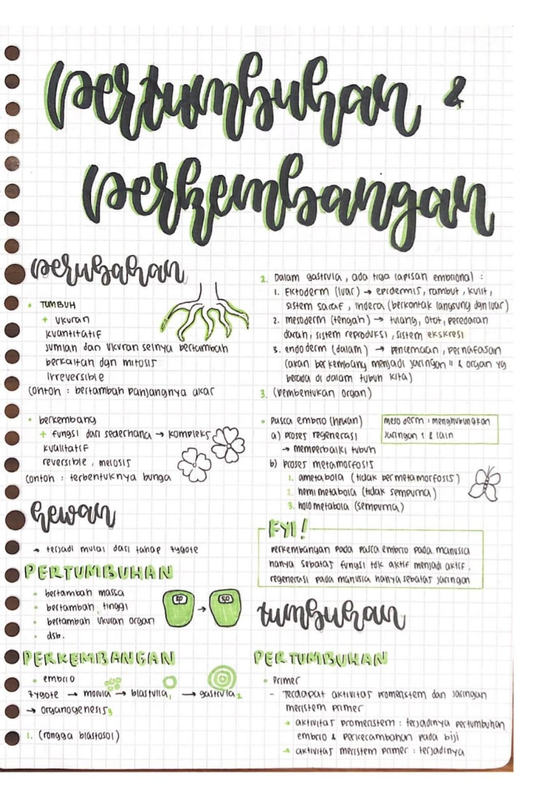 pertumbuhan &
perkembangan
perubahan
• TUMBUH
+ ukuran
kuantitatif
jumlah dan ukuran selnya bertambah
berkaitan dgn mitosis
irreversible
contoh : bertambah panjangnya akar
• berkembang
+ fungsi dari sederhana → kompleks
kualitatif
reversible, meiosis
contoh : terbentuknya bunga
hewan
→ terjadi mulai dari tahap zygote
PERTUMBUHAN
• bertambah massa
• bertambah tinggi
• bertambah ukuran organ
• dsb.
60
80
PERKEMBANGAN
• embrio
zygote → morula → blastula1 → gastrula2
→ organogenesis3
1. (rongga blastosol)
2. Dalam gastrula, ada tiga lapisan embrional :
1. Ektoderm (luar) → epidermis, rambut, kulit,
sistem saraf, indera (berkontak langsung dgn luar)
2. mesoderm (tengah) → tulang, otot, peredaran
darah, sistem reproduksi, sistem ekskresi
3. endoderm (dalam) → pencernaan, pernafasan
(akan berkembang menjadi jaringan" & organ yg
berada di dalam tubuh kita)
3. (pembentukan organ)
• Pasca embrio (hewan)
a) proses regenerasi
→ memperbaiki tubuh
mesoderm : menghubungkan
jaringan 1 & lain
b) Proses metamorfosis
1. ametabola (tidak bermetamorfosis)
2. hemimetabola (tidak sempurna)
3. holometabola (sempurna)
FYI!
Perkembangan pada pasca embrio pada manusia
hanya sebatas fungsi tdk aktif menjadi aktif.
regenerasi pada manusia hanya sebatas jaringan
tumbuhan
PERTUMBUHAN
• Primer
- Terdapat aktivitas promeristem dan jaringan
meristem primer
→ aktivitas promeristem : terjadinya pertumbuhan
embrio & perkecambahan pada biji
→ aktivitas meristem primer : terjadinya